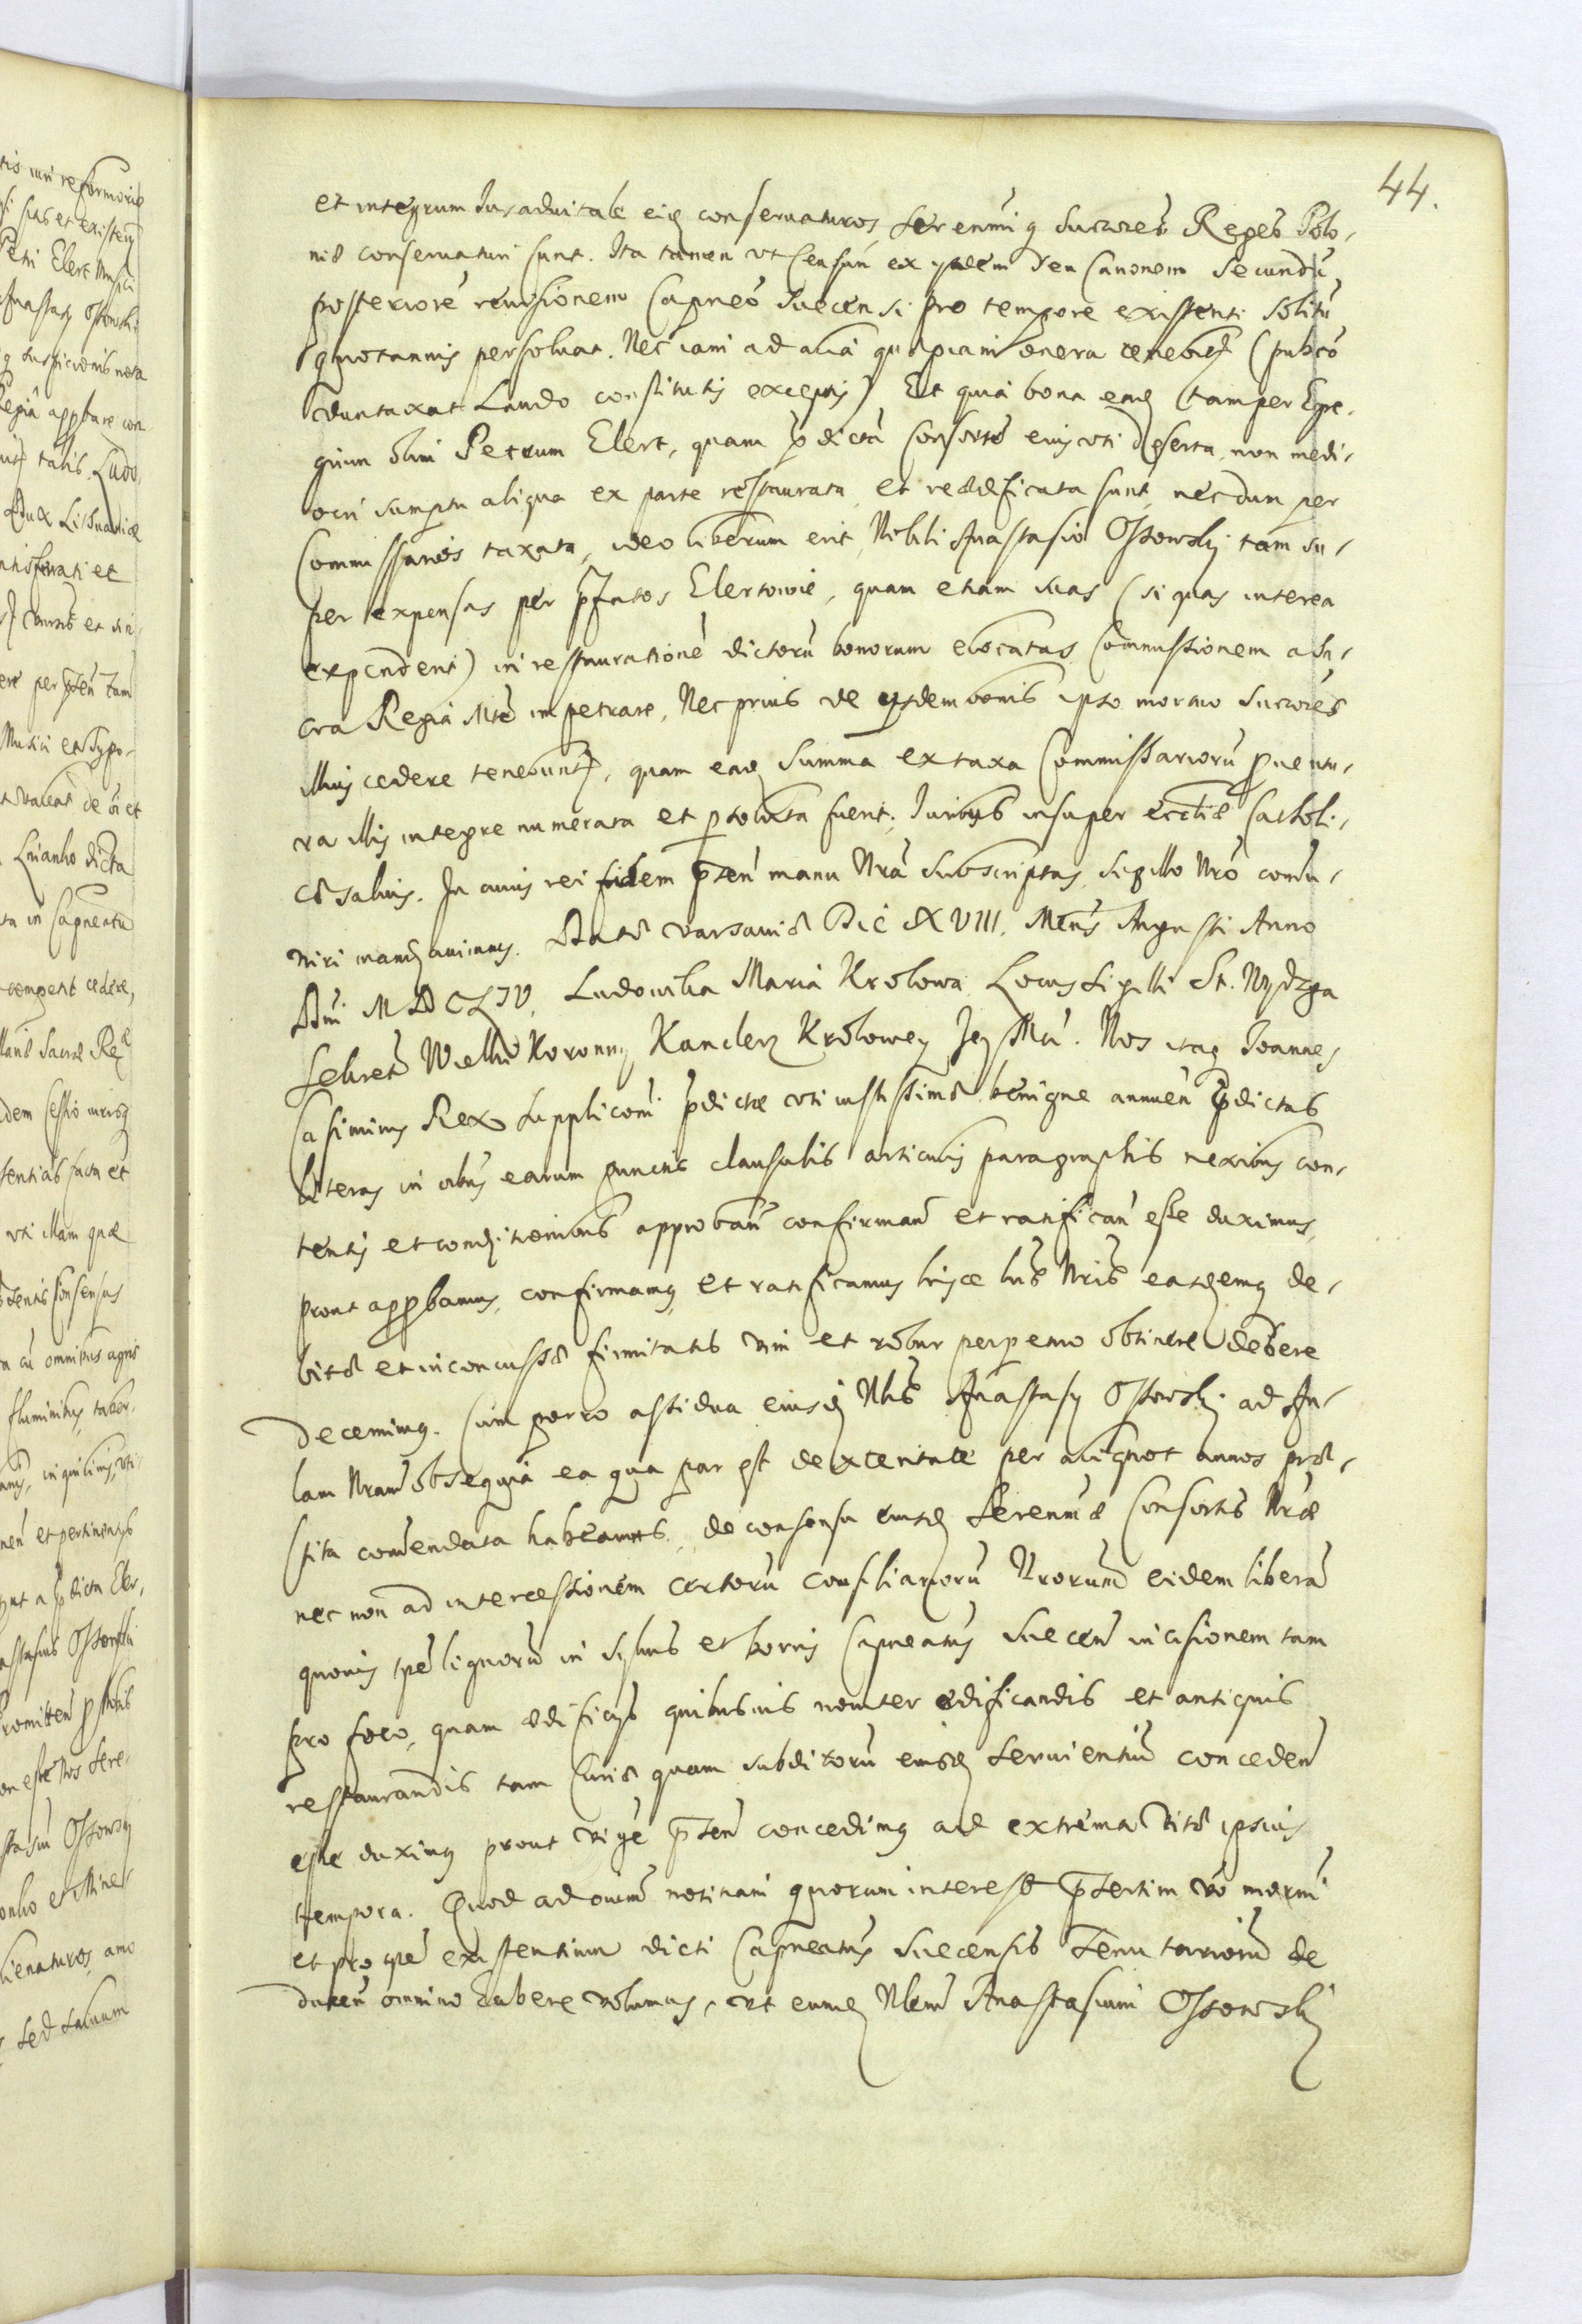 44.
et integrum Jus aduitale eiq conseruaturos, Serenmiq Succores Reges Polo-
niæ conseruaturi sunt. Ita tamen vt Censum ex ysdem seu Canonem Secundũ
posteriorẽ reuisionem Capneo Suecensi pro tempore existenti solitũ
quotannis persoluat. Nec iam ad alia quæpiam onera tenebit (pubco
duntaxat Laudo constitutis exceptis) Et quia bona eadẽ tam per Egre-
gium olim Petrum Elert, quam p dictã Consortẽ eius vti deserta, non medi-
ocri sumptu aliqua ex parte restaurata et reædificata sunt, necdum per
Commissarios taxata, ideo liberum erit Nobili Anastasio Ossowsky tam su-
per expensas per pfatos Elertowie, quam etiam suas (si quas interea
expenderit) in restaurationẽ dictorũ bonorum elocatas Commissionem a Sa-
cra Regia Mtẽ impetrare, Nec prius de ysdem bonis ipso mortuo Succores
illius cedere tenebunt, quam eadẽ Summa ex taxa Commissariorũ puentu-
ra illis integre numerata et psoluta fuerit. Juribus insuper eccliæ Catholi-
cæ saluis. In cuius rei fidem pnten manu Nra Subscriptas, sigillo Nro comu-
niri mandauimus. Datæ Varsauiæ Die XVIII. Mens Augusti Anno
Dni MDCLIV. Ludowika Maria Krolowa Locus Sigilli St. Wydzga
Sekret Wielki Koronny Kanclerz Krolowey Jey Mci. Nos itaq Joannes
Casimirus Rex Supplicomi pdictæ vti iustissimæ benigne annuen pdictas
literas in oibus earum punctis clausulis articulis paragraphis nexibus con-
tentis et conditionibus approban confirman et ratifican esse duximus,
prout appbamus, confirmamq et ratificamus hisce lris Nris easdemq de-
bitæ et inconcussæ firmitatis vim et robur perpetuo obtinere debere
decernimq. Cum porro assidua eiusdẽ Nblis Anastasy Ossowsky ad Au-
lam Nram obsequia ea qua par est dexteritate per aliquot annos præ-
stita comendata habeamus, de consensu eiusdẽ Serenmæ Consortis Nræ
nec non ad intercessionem certorũ consiliariorũ Nrorum eidem liberã
quouis tpe lignorũ in Syluis et borris Capneatus Suecen incisionem tam
pro foco, quam ædificys quibusuis nouiter ædificandis et antiquis
restaurandis tam Curiæ quam subditorũ eiusdẽ seruientiũ conceden
esse duximq prout vige pnten concedimq ad extrema vitæ ipsius
tempora. Quod ad oium notitiam quorum interest ptertim vo mdrni
et pro tpe existentium dicti Capneatus Suecensis Tenutariorũ de
ducen omnino habere volumus, vt eumdẽ Nblem Anastasium Ossowsky